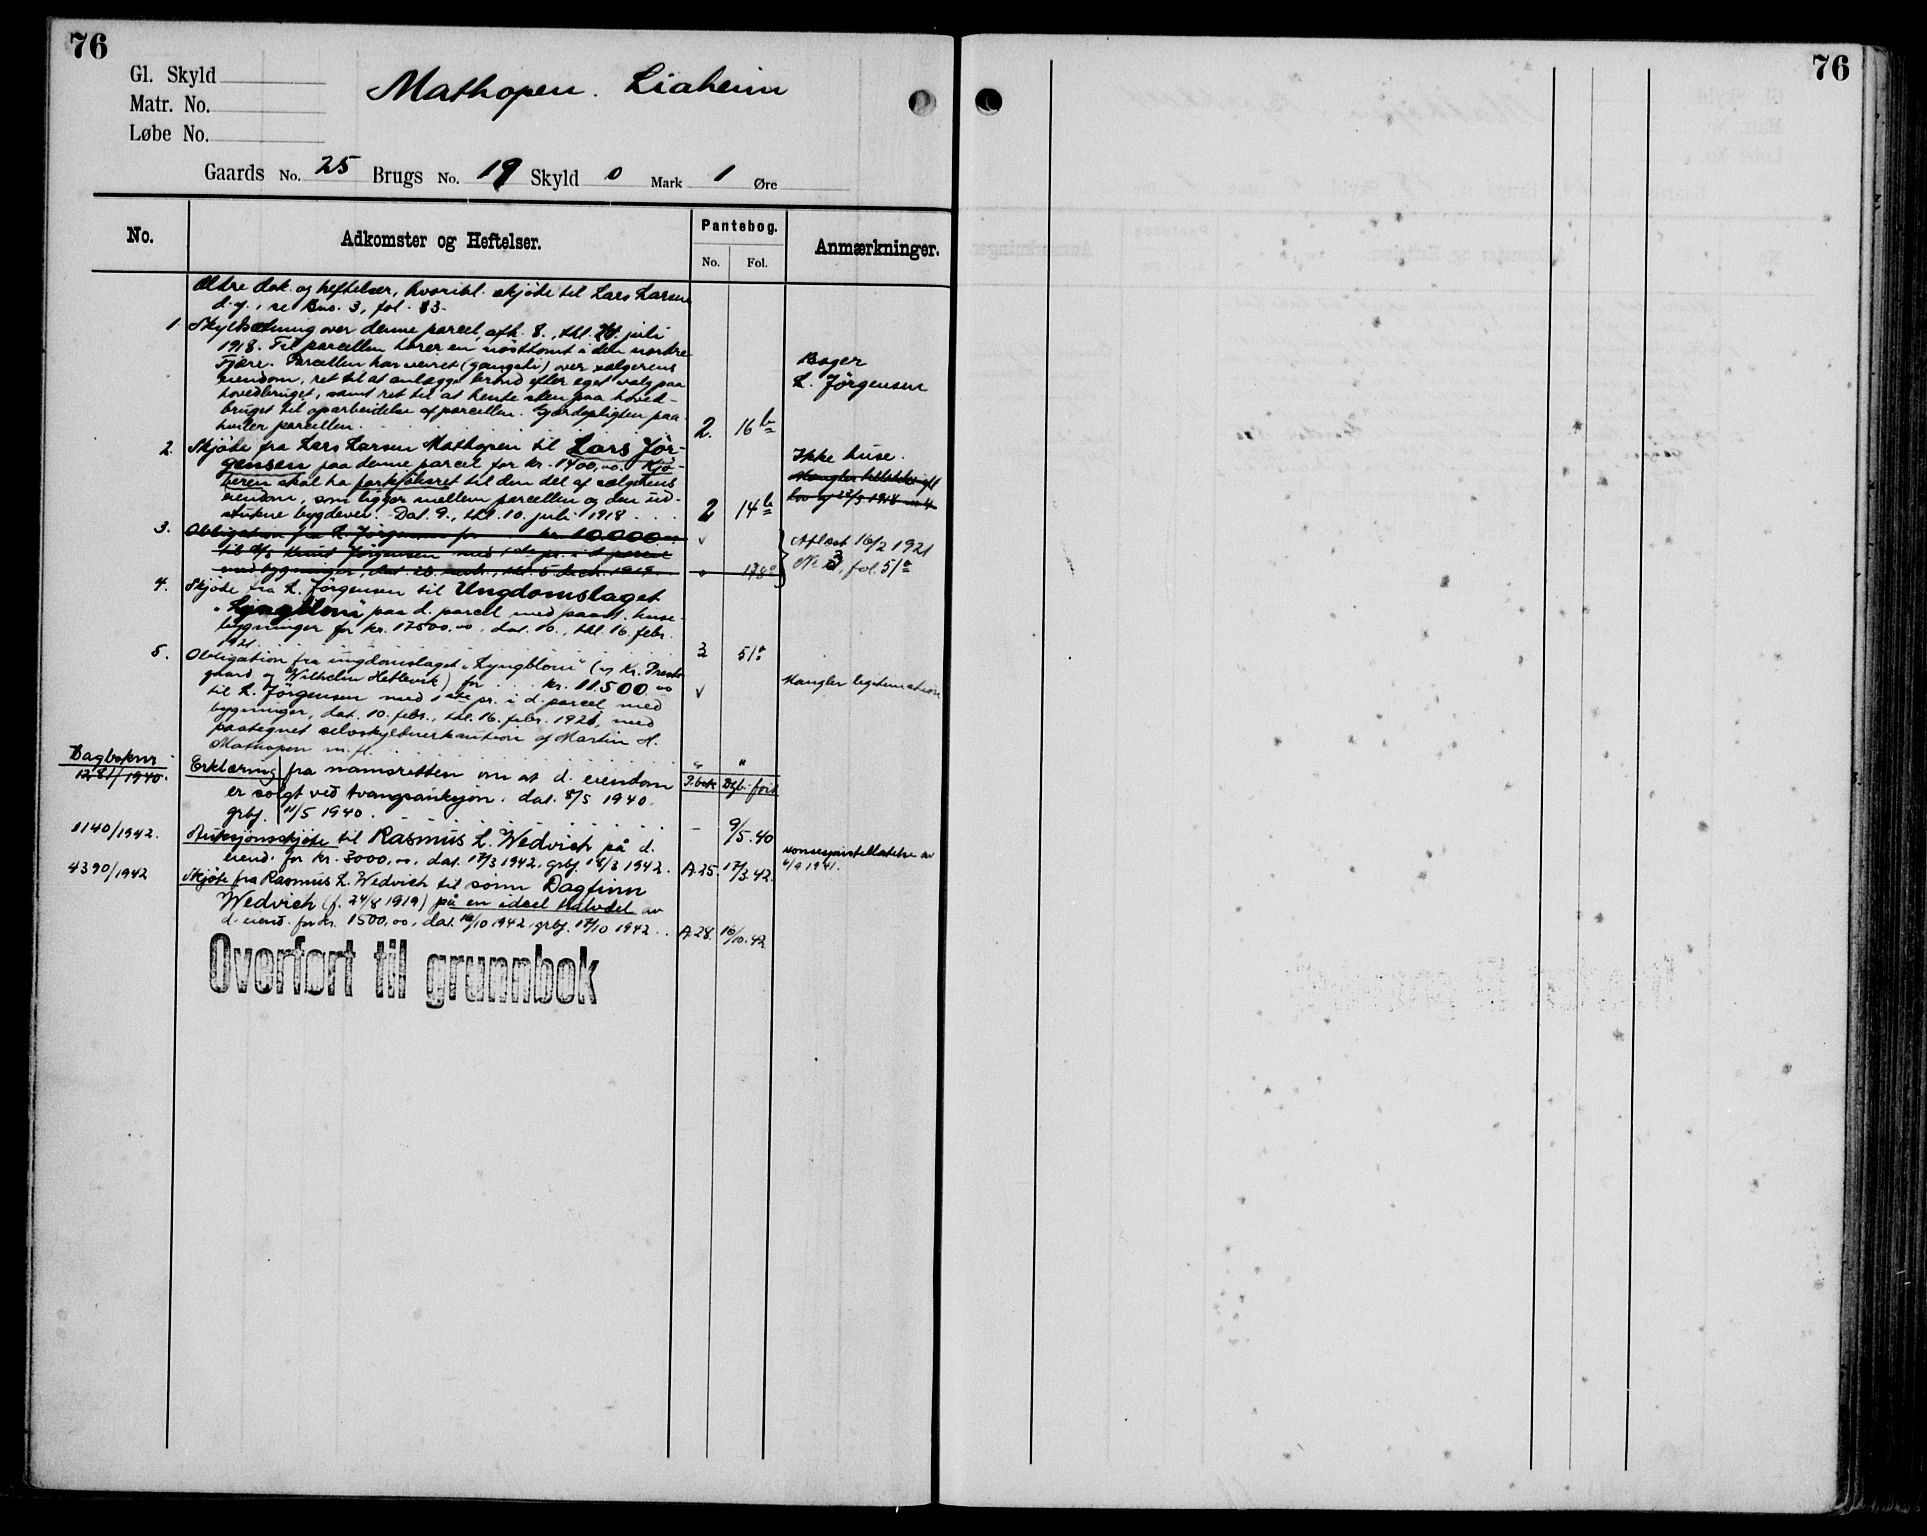 76
76
Gl. Skyld
Mathopen. Liaheim
Matr. No.
Løbe No.
Gaards No. 25 Brugs No. 19 Skyld 0 Mark 1 Øre
No.
Adkomster og Heftelser.
Pantebog.
No. Fol.
Anmærkninger.
Ældre dok. og heftelser, hvoribl. skjøde til Lars Larsen
d.y., se Bno. 3, fol. 83.
1. Skyldsætning over denne parcel, afh. 8., thl. juli
1918. Til parcellen hører en nøsttomt i den nordre
Fjære. Parcellen har veiret (gangsti) over sælgerens
eiendom, ret til at anlægge brønd efter eget valg paa
hovedbruget, samt ret til at hente sten paa hoved-
bruget til oparbeidelse af parcellen. Gjerdepligten paa-
hviler parcellen. 2. 16b
Bager
L. Jörgensen
2. Skjöde fra Lars Larsen Mathopen til Lars Jör-
gensen paa denne parcel for kr. 1400,00. Kjö-
beren skal ha forkjøbsret til den del af sælgerens
eiendom, som ligger mellem parcellen og den ud-
stukne bygdevei. Dat. 9., thl. 10. juli 1918 2 14b
Ikke huse.
Mangler tilladelse
lov af 1918
3. Obligation fra L. Jörgensen for kr. 10.000
til Knut Jörgensen med 1ste pr. i d. parcel
med bygninger, dat. 28. , thl. 5. decb. 1919. 178a
Aflæst 16/2 1921
No 3, fol. 51a
4. Skjöde fra L. Jörgensen til Ungdomslaget
"Lyngblom" paa d. parcel med paast. huse-
bygninger for kr. 17500,00, dat. 10., thl. 16. febr.
1921 3 51a
5. Obligation fra ungdomslaget "Lyngblom" (v/ Kr. Prest-
gaard og Wilhelm Hetlevik) for kr. 11.500,00
til L. Jörgensen med 1ste pr. i d. parcel med
bygninger, dat. 10. febr., thl. 16. febr. 1921, med
paategnet selvskyldnerkaution af Martin H.
Mathopen m. fl. " "
Mangler legitimation
Dagboknr
1281/1940. Erklæring fra namsretten om at d. eiendom
er solgt ved tvangsauksjon. dat. 8/5 1940.
grbf. 11/5 1940. - 9/5.40
P.bok Dgb. ført
1140/1942. Auksjonsskjöte til Rasmus L. Wedvich på d.
eiend. for kr. 3000,00, dat. 17/3 1942, grbf. 18/3 1942. A.25 17/3.42.
Konsesjonstillatelse av
1941.
4390/1942 Skjøte fra Rasmus L. Wedvich til sønn Dagfinn
Wedvich (f. 24/8 1919) på en ideel halvdel av
d. eiend. for kr. 1500,00, dat. 16/10 1942, grbf. 17/10 1942. A.28. 16/10.42
Overført til grunnbok